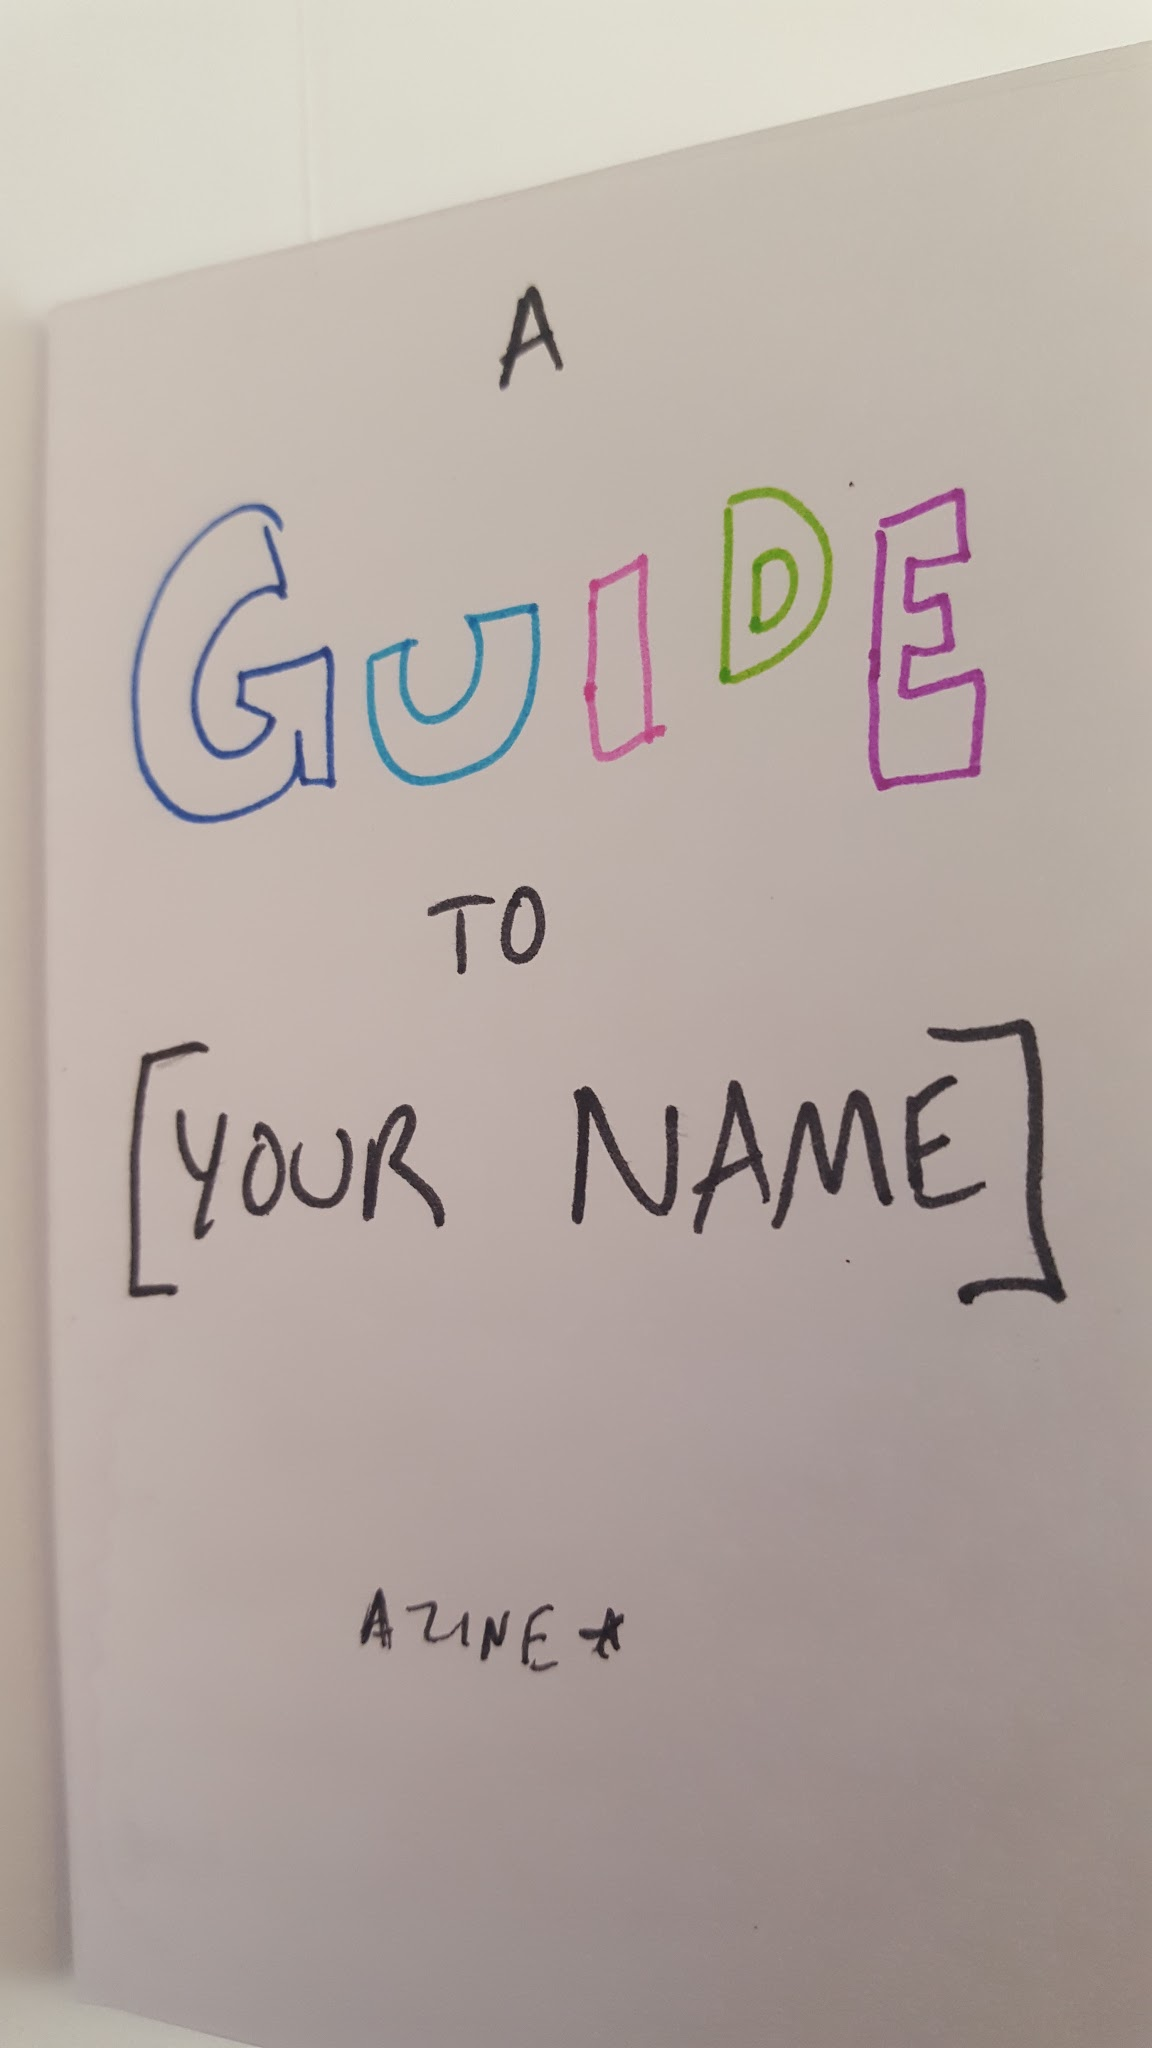 A
GUIDE
TO
[YOUR NAME]
A ZINE